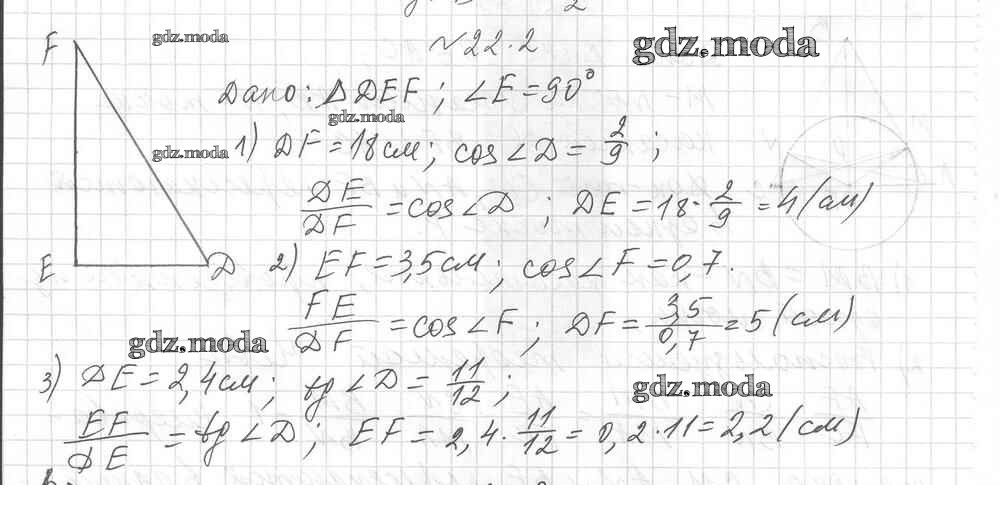 № 22.2
gdz.moda
gdz.moda
F
Дано: Δ DEF; ∠E = 90°
gdz.moda
gdz.moda
1) DF = 18 см; cos∠D = 2/9;
DE/DF = cos∠D; DE = 18 · 2/9 = 4 (см)
E
D
2) EF = 3,5 см; cos∠F = 0,7.
FE/DF = cos∠F; DF = 3,5/0,7 = 5 (см)
gdz.moda
3) DE = 2,4 см; tg∠D = 11/12;
gdz.moda
EF/DE = tg∠D; EF = 2,4 · 11/12 = 0,2 · 11 = 2,2 (см)